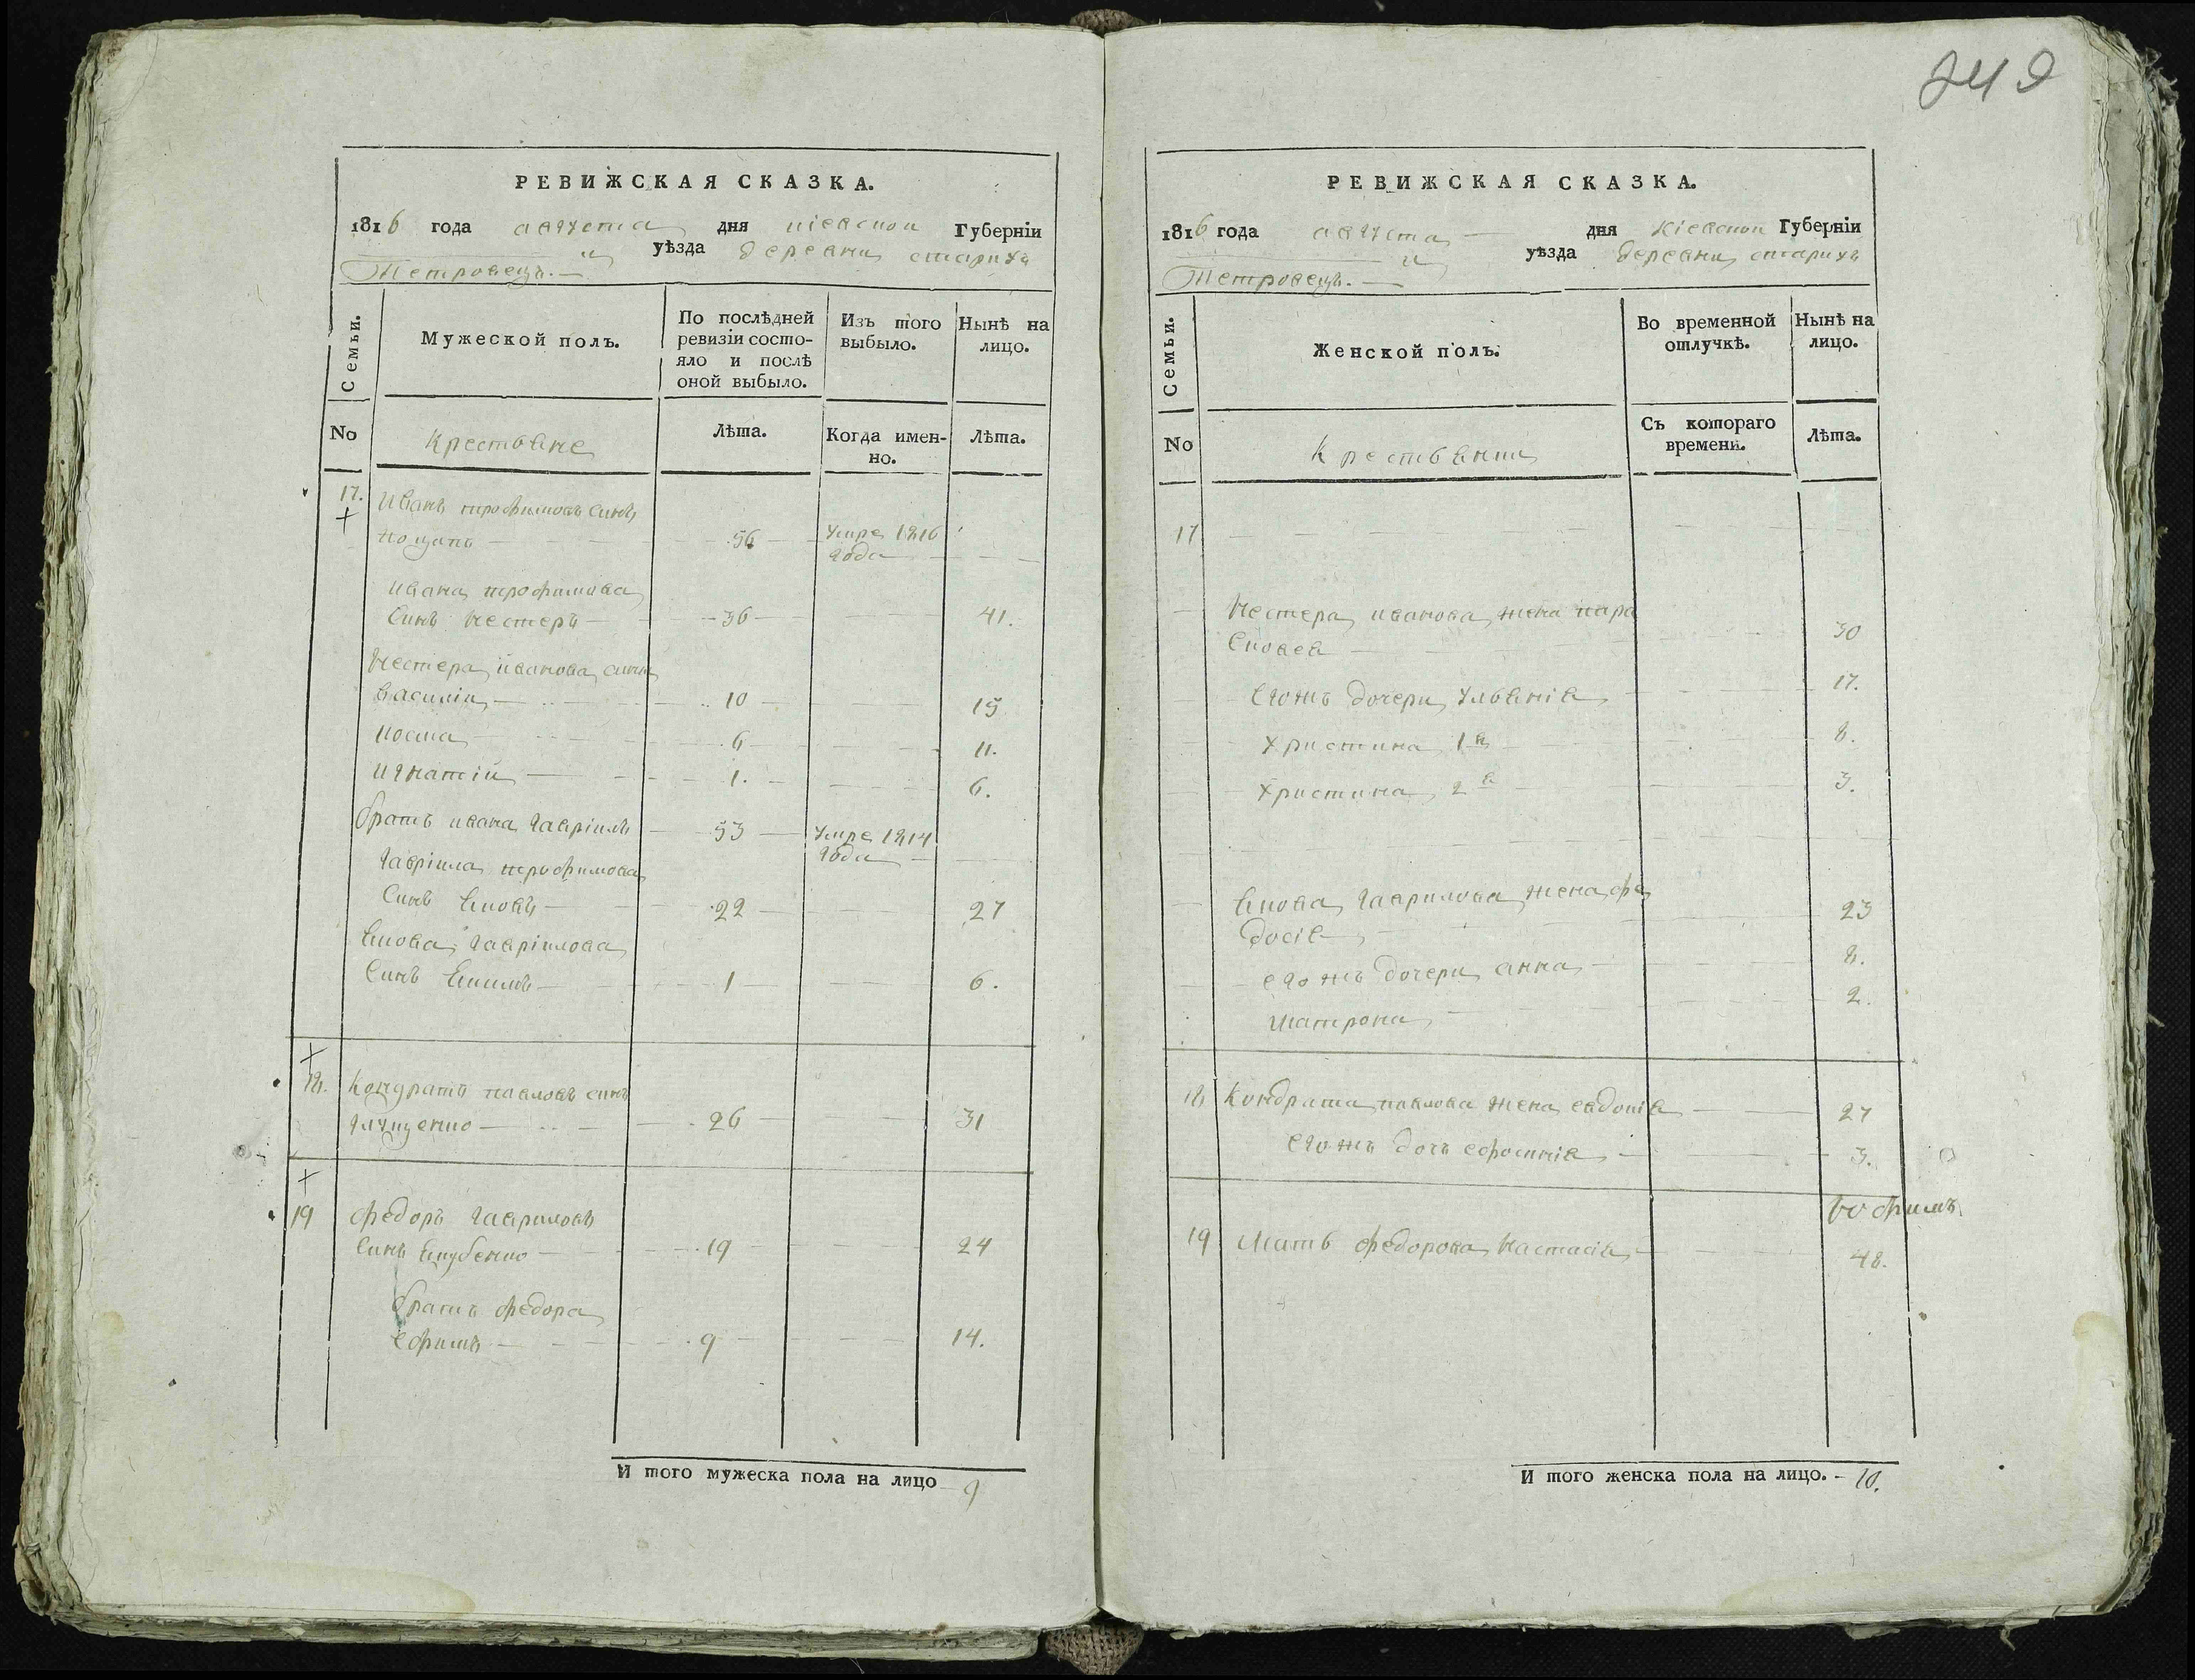 249
РЕВИЖСКАЯ СКАЗКА.
1816 года августа дня кіевской Губерніи
и уѣзда деревни старихъ
Петровецъ.
Семьи.
Мужеской полъ.
По послѣдней ревизіи состо-
яло и послѣ
оной выбыло.
Изъ того
выбыло.
Нынѣ на
лицо.
No
крестьяне
Лѣта.
Когда имен-
но.
Лѣта.
17. Иванъ трофимовъ синъ
56 Умре 1816
года
ивана трофимова
синъ нестеръ 36 41.
Нестера иванова сини
василій 10 15
6 11.
игнатій 1. 6.
братъ ивана гавріилъ 53 Умре 1814
года
гавріила трофимова
синъ яковъ 22 27
якова гавріилова
синъ 1 6.
18. Кондратъ павловъ синъ
26 31
19 Федоръ гавриловъ
синъ 19 24
братъ федора
ефимъ 9 14.
И того мужеска пола на лицо 9
РЕВИЖСКАЯ СКАЗКА.
1816 года августа дня Кіевской Губерніи
и уѣзда деревни старихъ
Петровецъ.
Семьи.
Женской полъ.
Во временной
отлучкѣ.
Нынѣ на
лицо.
No
крестьянки
Съ котораго
времени.
Лѣта.
17
Нестера иванова жена пара
сковея 30
егожъ дочери ульянія 17.
христина 1я 8.
христина 2я 3.
якова гаврилова жена фе
досія 23
егожъ дочери анна 8.
матрона 2.
18 Кондрата павлова жена евдокія 27
егожъ дочь ефросинія 3.
19 Мать федорова настасія 48.
И того женска пола на лицо. 10.